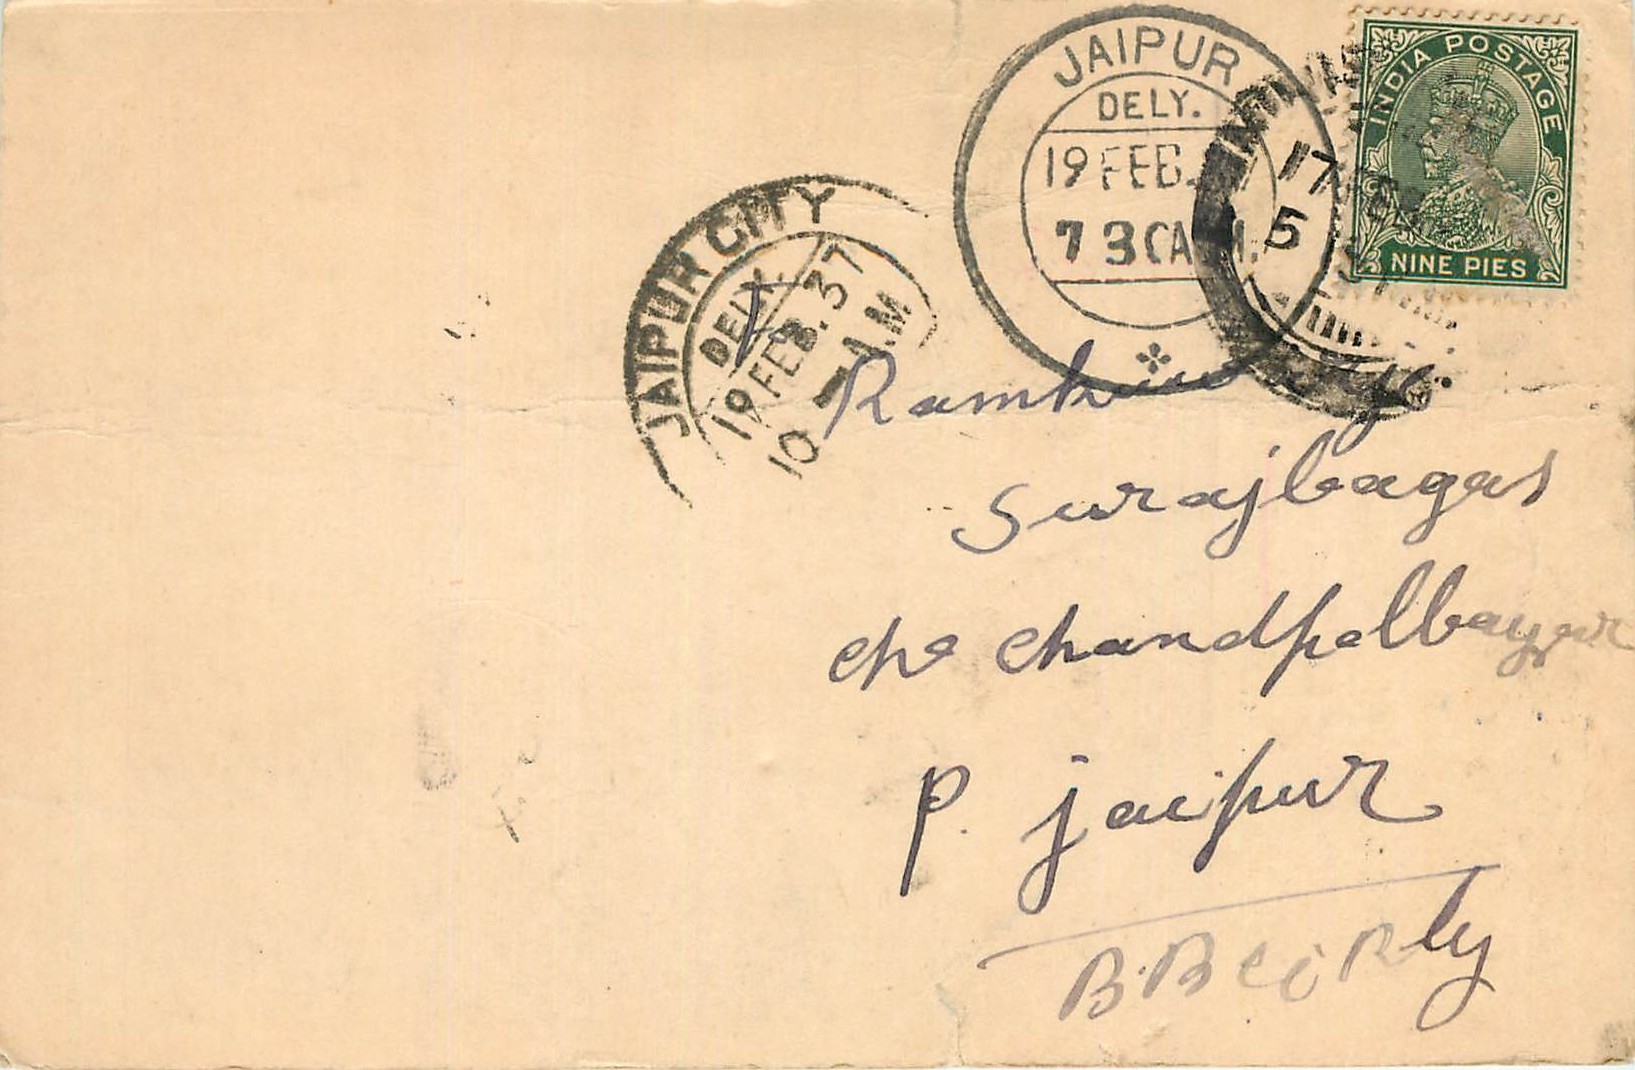 INDIA POSTAGE
NINE PIES
JAIPUR
DELY.
19 FEB.
7 3
17
5
JAIPUR CITY
DELY.
19 FEB. 37
10 - A.M
Surajbagas
Chandpolbayar
P. Jaipur
B.B
Rly